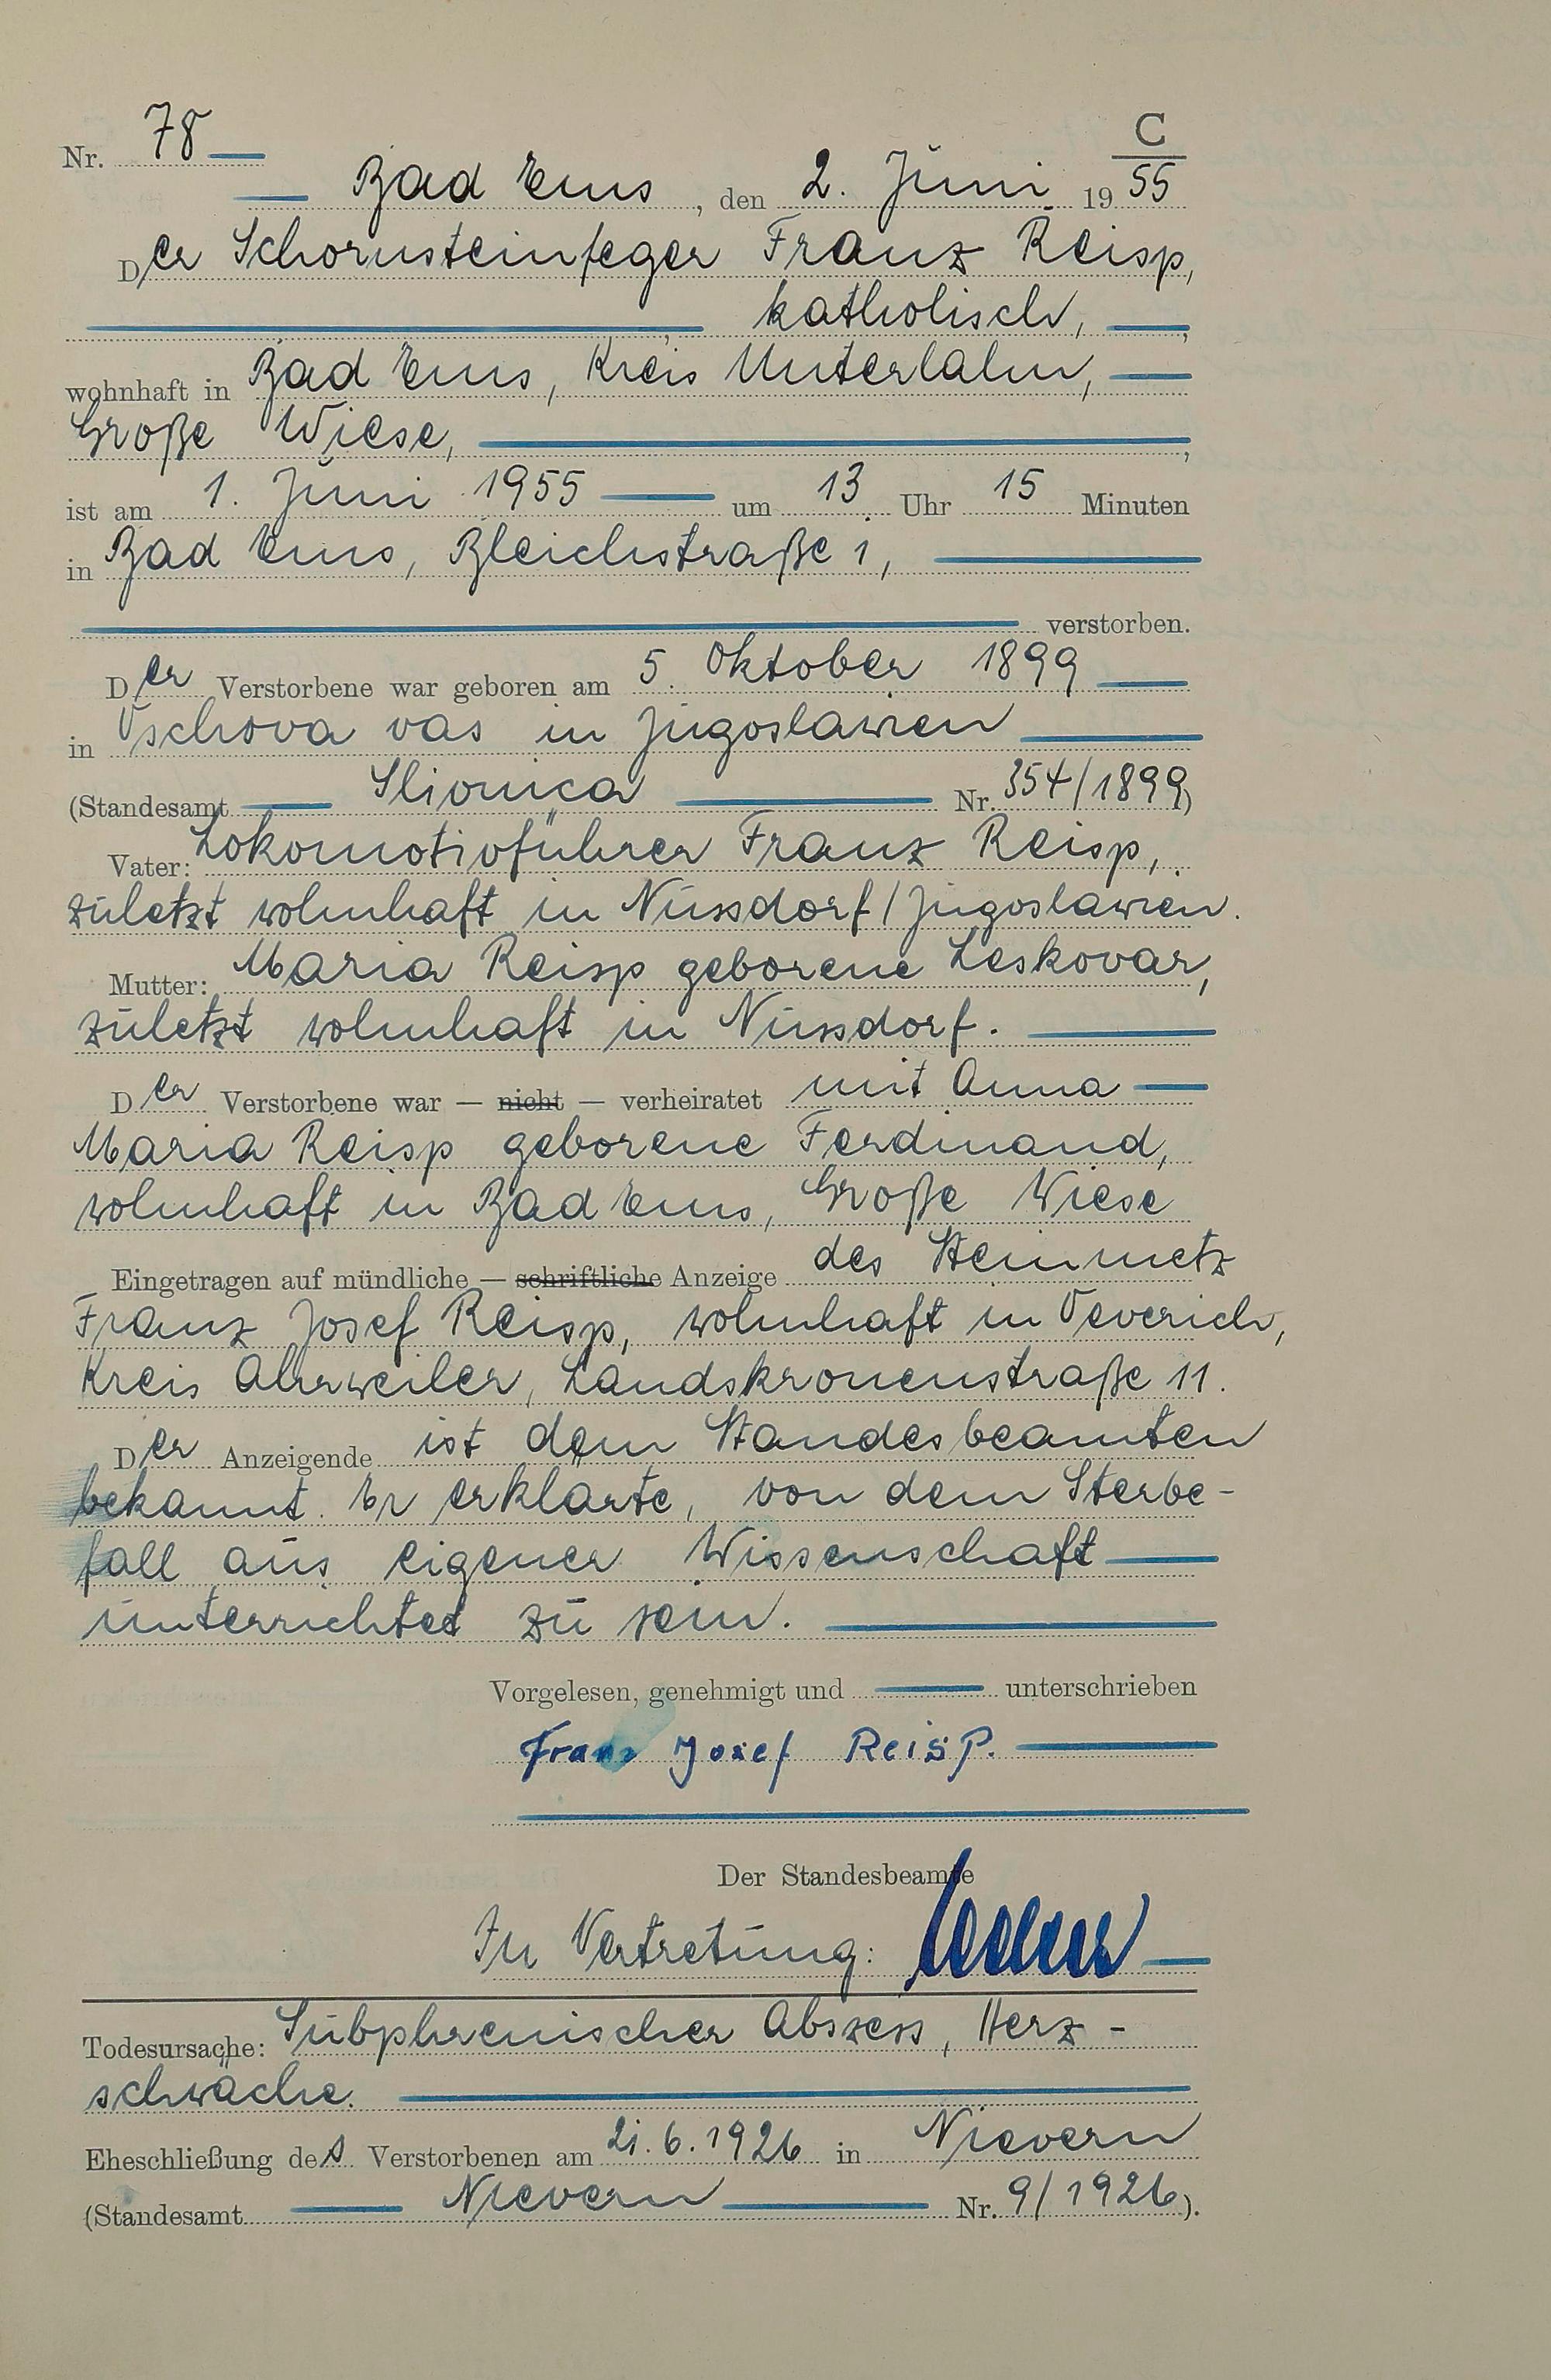 C
Nr. 78
Bad Ems, den 2. Juni 1955
Der Schornsteinfeger Franz Reisp,
katholisch,
wohnhaft in Bad Ems, Kreis Unterlahn,
Große Wiese,
ist am 1. Juni 1955 um 13 Uhr 15 Minuten
in Bad Ems, Bleichstraße 1,
verstorben.
Der Verstorbene war geboren am 5. Oktober 1899
in vas in Jugoslawien
(Standesamt Nr. 354/1899)
Vater: Lokomotivführer Franz Reisp,
zuletzt wohnhaft in Nussdorf/Jugoslawien.
Mutter: Maria Reisp geborene Leskovar,
zuletzt wohnhaft in Nussdorf.
Der Verstorbene war — nicht — verheiratet mit Anna
Maria Reisp geborene Ferdinand,
wohnhaft in Bad Ems, Große Wiese
Eingetragen auf mündliche — schriftliche Anzeige des Steinmetz
Franz Josef Reisp, wohnhaft in
Kreis Ahrweiler, Landskronenstraße 11.
Der Anzeigende ist dem Standesbeamten
bekannt. Er erklärte, von dem Sterbe-
fall aus eigener Wissenschaft
unterrichtet zu sein.
Vorgelesen, genehmigt und unterschrieben
Franz Josef Reisp.
Der Standesbeamte
In Vertretung:
Todesursache: Subphrenischer Abszess, Herz-
schwäche.
Eheschließung des Verstorbenen am 21.6.1926 in Nievern
(Standesamt Nievern Nr. 9/1926).